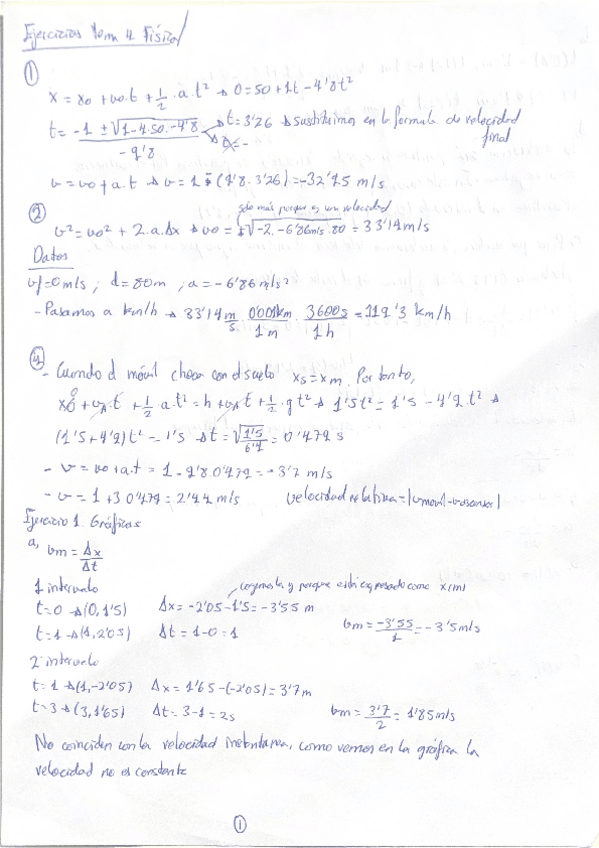 Ejercicios tema 4 Física
①
x = x0 + v0·t + 1/2·a·t² → 0 = 50 + 1t - 4'9t²
t = -1 ± √1-4·50·-4'9 / -9'8 → t = 3'26 → sustituimos en la formula de velocidad final
v = v0 + a·t → v = 1 - (9'8·3'26) = -32'95 m/s
②
solo más porque es una velocidad
v² = v0² + 2·a·Δx → v0 = +√-2·-6'86m/s·80 = 33'14 m/s
Datos
vf = 0 m/s ; d = 80m ; a = -6'86 m/s²
- Pasamos a km/h → 33'14 m/s · 0'001km/1m · 3600s/1h = 119'3 km/h
④
- Cuando el móvil choca con el suelo xs = xm. Por tanto,
x0 + v0·t + 1/2 a·t² = h + v0·t + 1/2·g t² → 1'5t² = 1'5 - 4'9 t² →
(1'5+4'9)t² = 1'5 → t = √1'5/6'4 = 0'479 s
- v = v0 + a·t = 1 - 9'8·0'479 = -3'7 m/s
- v = 1 + 3·0'479 = 2'44 m/s velocidad relativa = |vmovil - vascensor|
Ejercicio 1. Gráficas
a, vm = Δx/Δt
1 intervalo
cogemos la y porque está expresado como x(m)
t=0 → (0, 1'5) Δx = -2'05 - 1'5 = -3'55 m
t=1 → (1, -2'05) Δt = 1-0 = 1 vm = -3'55/1 = -3'5 m/s
2 intervalo
t=1 → (1, -2'05) Δx = 1'65 - (-2'05) = 3'7 m
t=3 → (3, 1'65) Δt = 3-1 = 2s vm = 3'7/2 = 1'85 m/s
No coinciden con la velocidad instantanea, como vemos en la gráfica la
velocidad no es constante
①